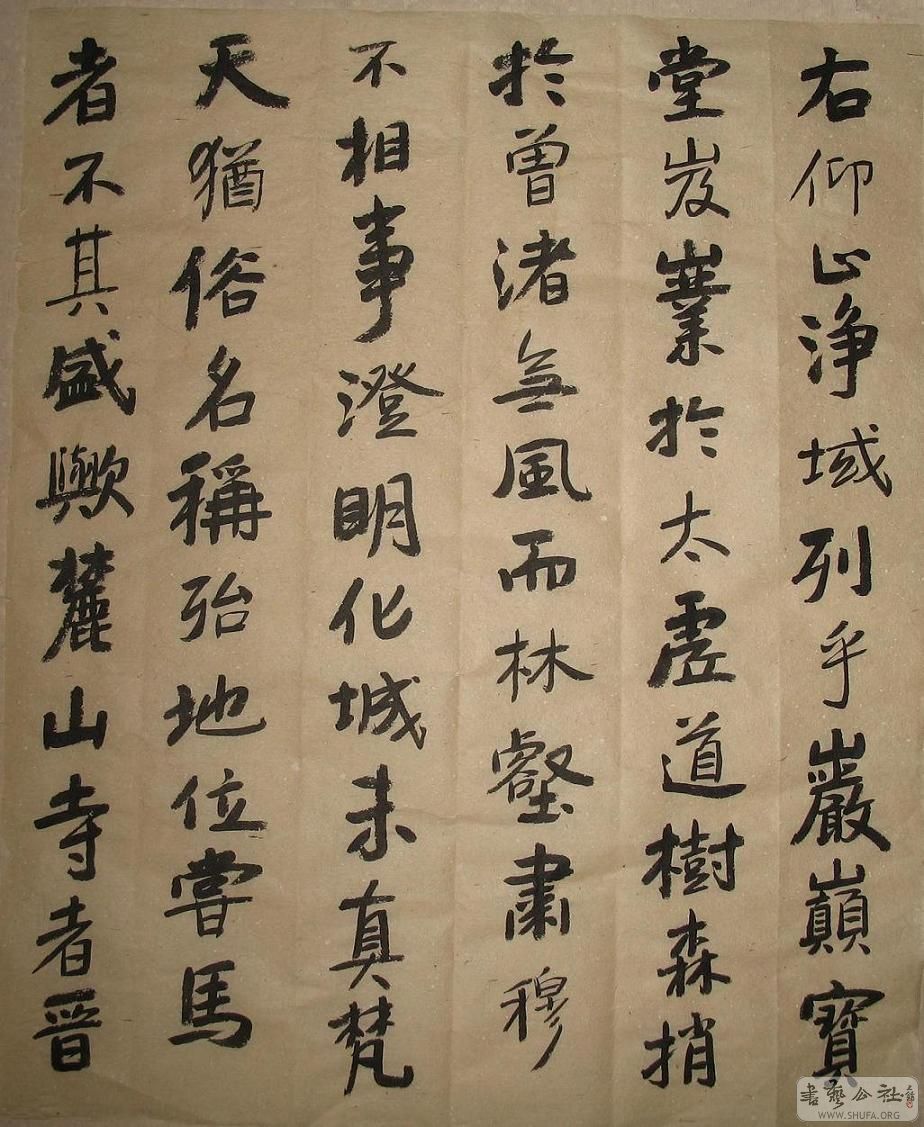 右仰止淨域列乎巖巔寶
堂岌嶪於太虛道樹森捎
於曾渚無風而林壑肅穆
不相事澄明化城未真梵
天猶俗名稱殆地位嘗馬
者不其盛歟麓山寺者晉
書藝公社
WWW.SHUFA.ORG